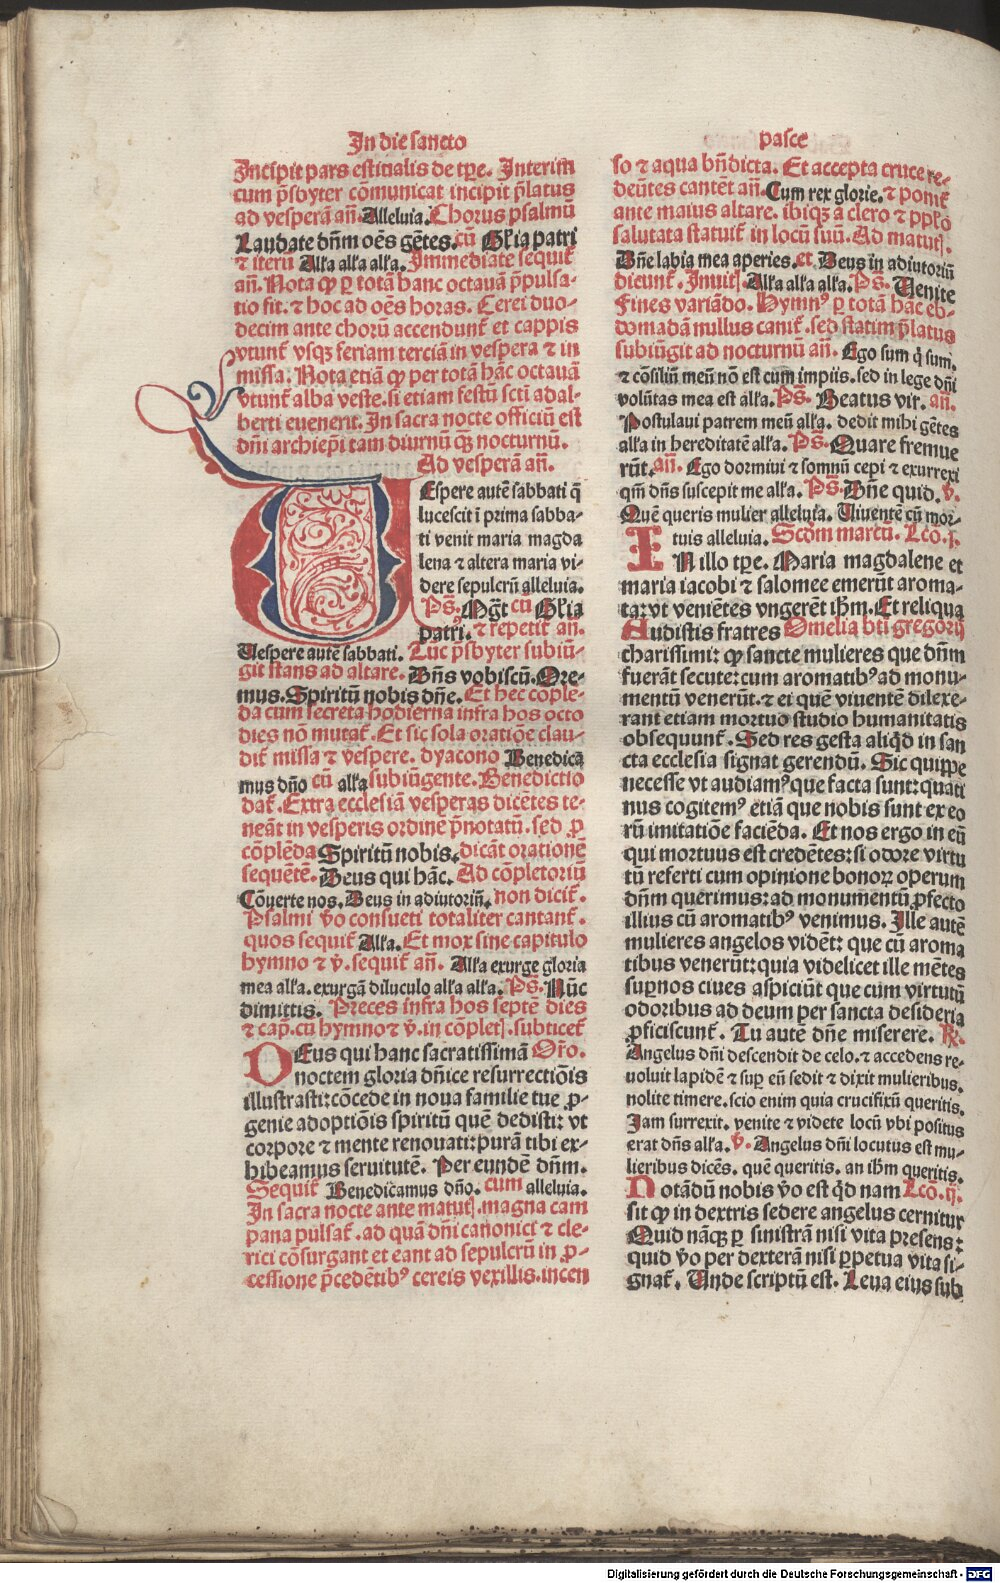 In die sancto
pasce
Incipit pars estiualis de tꝑe. Interim
cum p̄sbyter cōmunicat incipit p̄latus
ad vesperā an̄. Alleluia. Chorus psalmū
Laudate dn̄m oēs gētes. cū Gl̓ia patri
⁊ iterū Alľa alľa alľa. Immediate sequit᷑
an̄. Nota ꝙ ꝑ totā hanc octauā p̄pulsa⸗
tio fit. ⁊ hoc ad oēs horas. Cerei duo⸗
decim ante chorū accendunt᷑ et cappis
vtunt᷑ vsqꝫ feriam terciā in vespera ⁊ in
missa. Nota etiā ꝙ per totā hāc octauā
vtunt᷑ alba veste. si etiam festū scti adal⸗
berti euenerit. In sacra nocte officiū est
dn̄i archiep̄i tam diurnū qꝫ nocturnū.
Ad vesperā an̄.
VEspere autē sabbati q̄
lucescit ī prima sabba⸗
ti venit maria magda
lena ⁊ altera maria vi⸗
dere sepulcrū alleluia.
Ps̄. Mg̅t cū Gl̓ia
patri. ⁊ repetit᷑ an̄.
Uespere autē sabbati. Tūc p̄sbyter subiū⸗
git stans ad altare. Dn̄s vobiscū. Ore⸗
mus. Spiritū nobis dn̄e. Et hec cōple⸗
da cum secreta hodierna infra hos octo
dies nō mutat᷑. Et sic sola oratiōe clau⸗
dit᷑ missa ⁊ vespere. dyacono Benedica
mus dn̄o cū alľa subiūgente. Benedictio
dat᷑. Extra ecclesiā vesperas dicētes te⸗
neāt in vesperis ordinē p̄notatū. sed ꝓ
cōplēda Spiritū nobis. dicāt orationē
sequētē. Deus qui hāc. Ad cōpletoriū
Cōuerte nos. Deus in adiutoriū. non dicit᷑.
Psalmi v̄o consueti totaliter cantant᷑.
quos sequit᷑ Alľa. Et mox sine capitulo
hymno ⁊ v̄. sequit᷑ an̄. Alľa exurge gloria
mea alľa. exurgā diluculo alľa alľa. Ps̄. Nūc
dimittis. Preces infra hos septē dies
⁊ cap̄. cū hymno ⁊ v̄. in cōpletꝭ. subticet᷑
DEus qui hanc sacratissimā Or̄o.
noctem gloria dn̄ice resurrectiōis
illustrasti: cōcede in noua familie tue ꝓ⸗
genie adoptiōis spiritū quē dedisti: vt
corpore ⁊ mente renouati: purā tibi ex⸗
hibeamus seruitutē. Per eundē dn̄m.
Sequit᷑ Benedicamus dn̄o. cum alleluia.
In sacra nocte ante matutꝭ. magna cam
pana pulsat᷑. ad quā dn̄i canonici ⁊ cle⸗
rici cōsurgant et eant ad sepulcrū in ꝓ⸗
cessione p̄cedētibꝰ cereis vexillis. incen
so ⁊ aqua bn̄dicta. Et accepta cruce re⸗
deūtes cantēt an̄. Cum rex glorie. ⁊ ponit᷑
ante maius altare. ibiqꝫ a clero ⁊ pp̄lo
salutata statuit᷑ in locū suū. Ad matutꝭ.
Dn̄e labia mea aperies. et Deus in adiutoriū
dicunt᷑. Inuitꝭ Alľa alľa alľa. Ps̄. Uenite
Fines variādo. Hymnꝰ ꝑ totā hāc eb⸗
domadā nullus canit᷑. sed statim p̄latus
subiūgit ad nocturnū an̄. Ego sum q̄ sum.
⁊ cōsiliū meū nō est cum impiis. sed in lege dn̄i
volūtas mea est alľa. Ps̄. Beatus vir. an̄.
Postulaui patrem meū alľa. dedit mihi gētes
alľa in hereditatē alľa. Ps̄. Quare fremue
rūt. an̄. Ego dormiui ⁊ somnū cepi ⁊ exurrexi
qm̄ dn̄s suscepit me alľa. Ps̄. Dn̄e quid. v̄.
Quē queris mulier alleluia. Uiuentē cū mor⸗
tuis alleluia. Scd̄m marcū. Lc̄o. j.
IN illo tꝑe. Maria magdalene et
maria iacobi ⁊ salomee emerūt aroma⸗
ta: vt veniētes vngerēt ih̄m. Et reliqua
Audistis fratres Omelia bt̄i gregorij
charissimi: ꝙ sancte mulieres que dn̄m
fuerāt secute: cum aromatibꝰ ad monu⸗
mentū venerūt. ⁊ ei quē viuentē dilexe⸗
rant etiam mortuo studio humanitatis
obsequunt᷑. Sed res gesta aliq̄d in san
cta ecclesia signat gerendū. Sic quippe
necesse vt audiamꝰ que facta sunt: quati
nus cogitemꝰ etiā que nobis sunt ex eo
rū imitatiōe faciēda. Et nos ergo in eū
qui mortuus est credētes: si odore virtu
tū referti cum opinione bonoꝝ operum
dn̄m querimus: ad monumētū ꝓfecto
illius cū aromatibꝰ venimus. Ille autē
mulieres angelos vidēt: que cū aroma
tibus venerūt: quia videlicet ille mētes
suꝑnos ciues aspiciūt que cum virtutū
odoribus ad deum per sancta desideria
ꝓficiscunt᷑. Tu autē dn̄e miserere. ℟.
Angelus dn̄i descendit de celo. ⁊ accedens re⸗
uoluit lapidē ⁊ suꝑ eū sedit ⁊ dixit mulieribus.
nolite timere. scio enim quia crucifixū queritis.
Iam surrexit. venite ⁊ videte locū vbi positus
erat dn̄s alľa. v̄. Angelus dn̄i locutus est mu⸗
lieribus dicēs. quē queritis. an ih̄m queritis.
NOtādū nobis v̄o est q̄d nam Lc̄o. ij.
sit ꝙ in dextris sedere angelus cernitur
Quid nāqꝫ ꝑ sinistrā nisi vita presens:
quid v̄o per dexterā nisi ꝑpetua vita si⸗
gnat᷑. Unde scriptū est. Leua eius sub
Digitalisierung gefördert durch die Deutsche Forschungsgemeinschaft - DFG